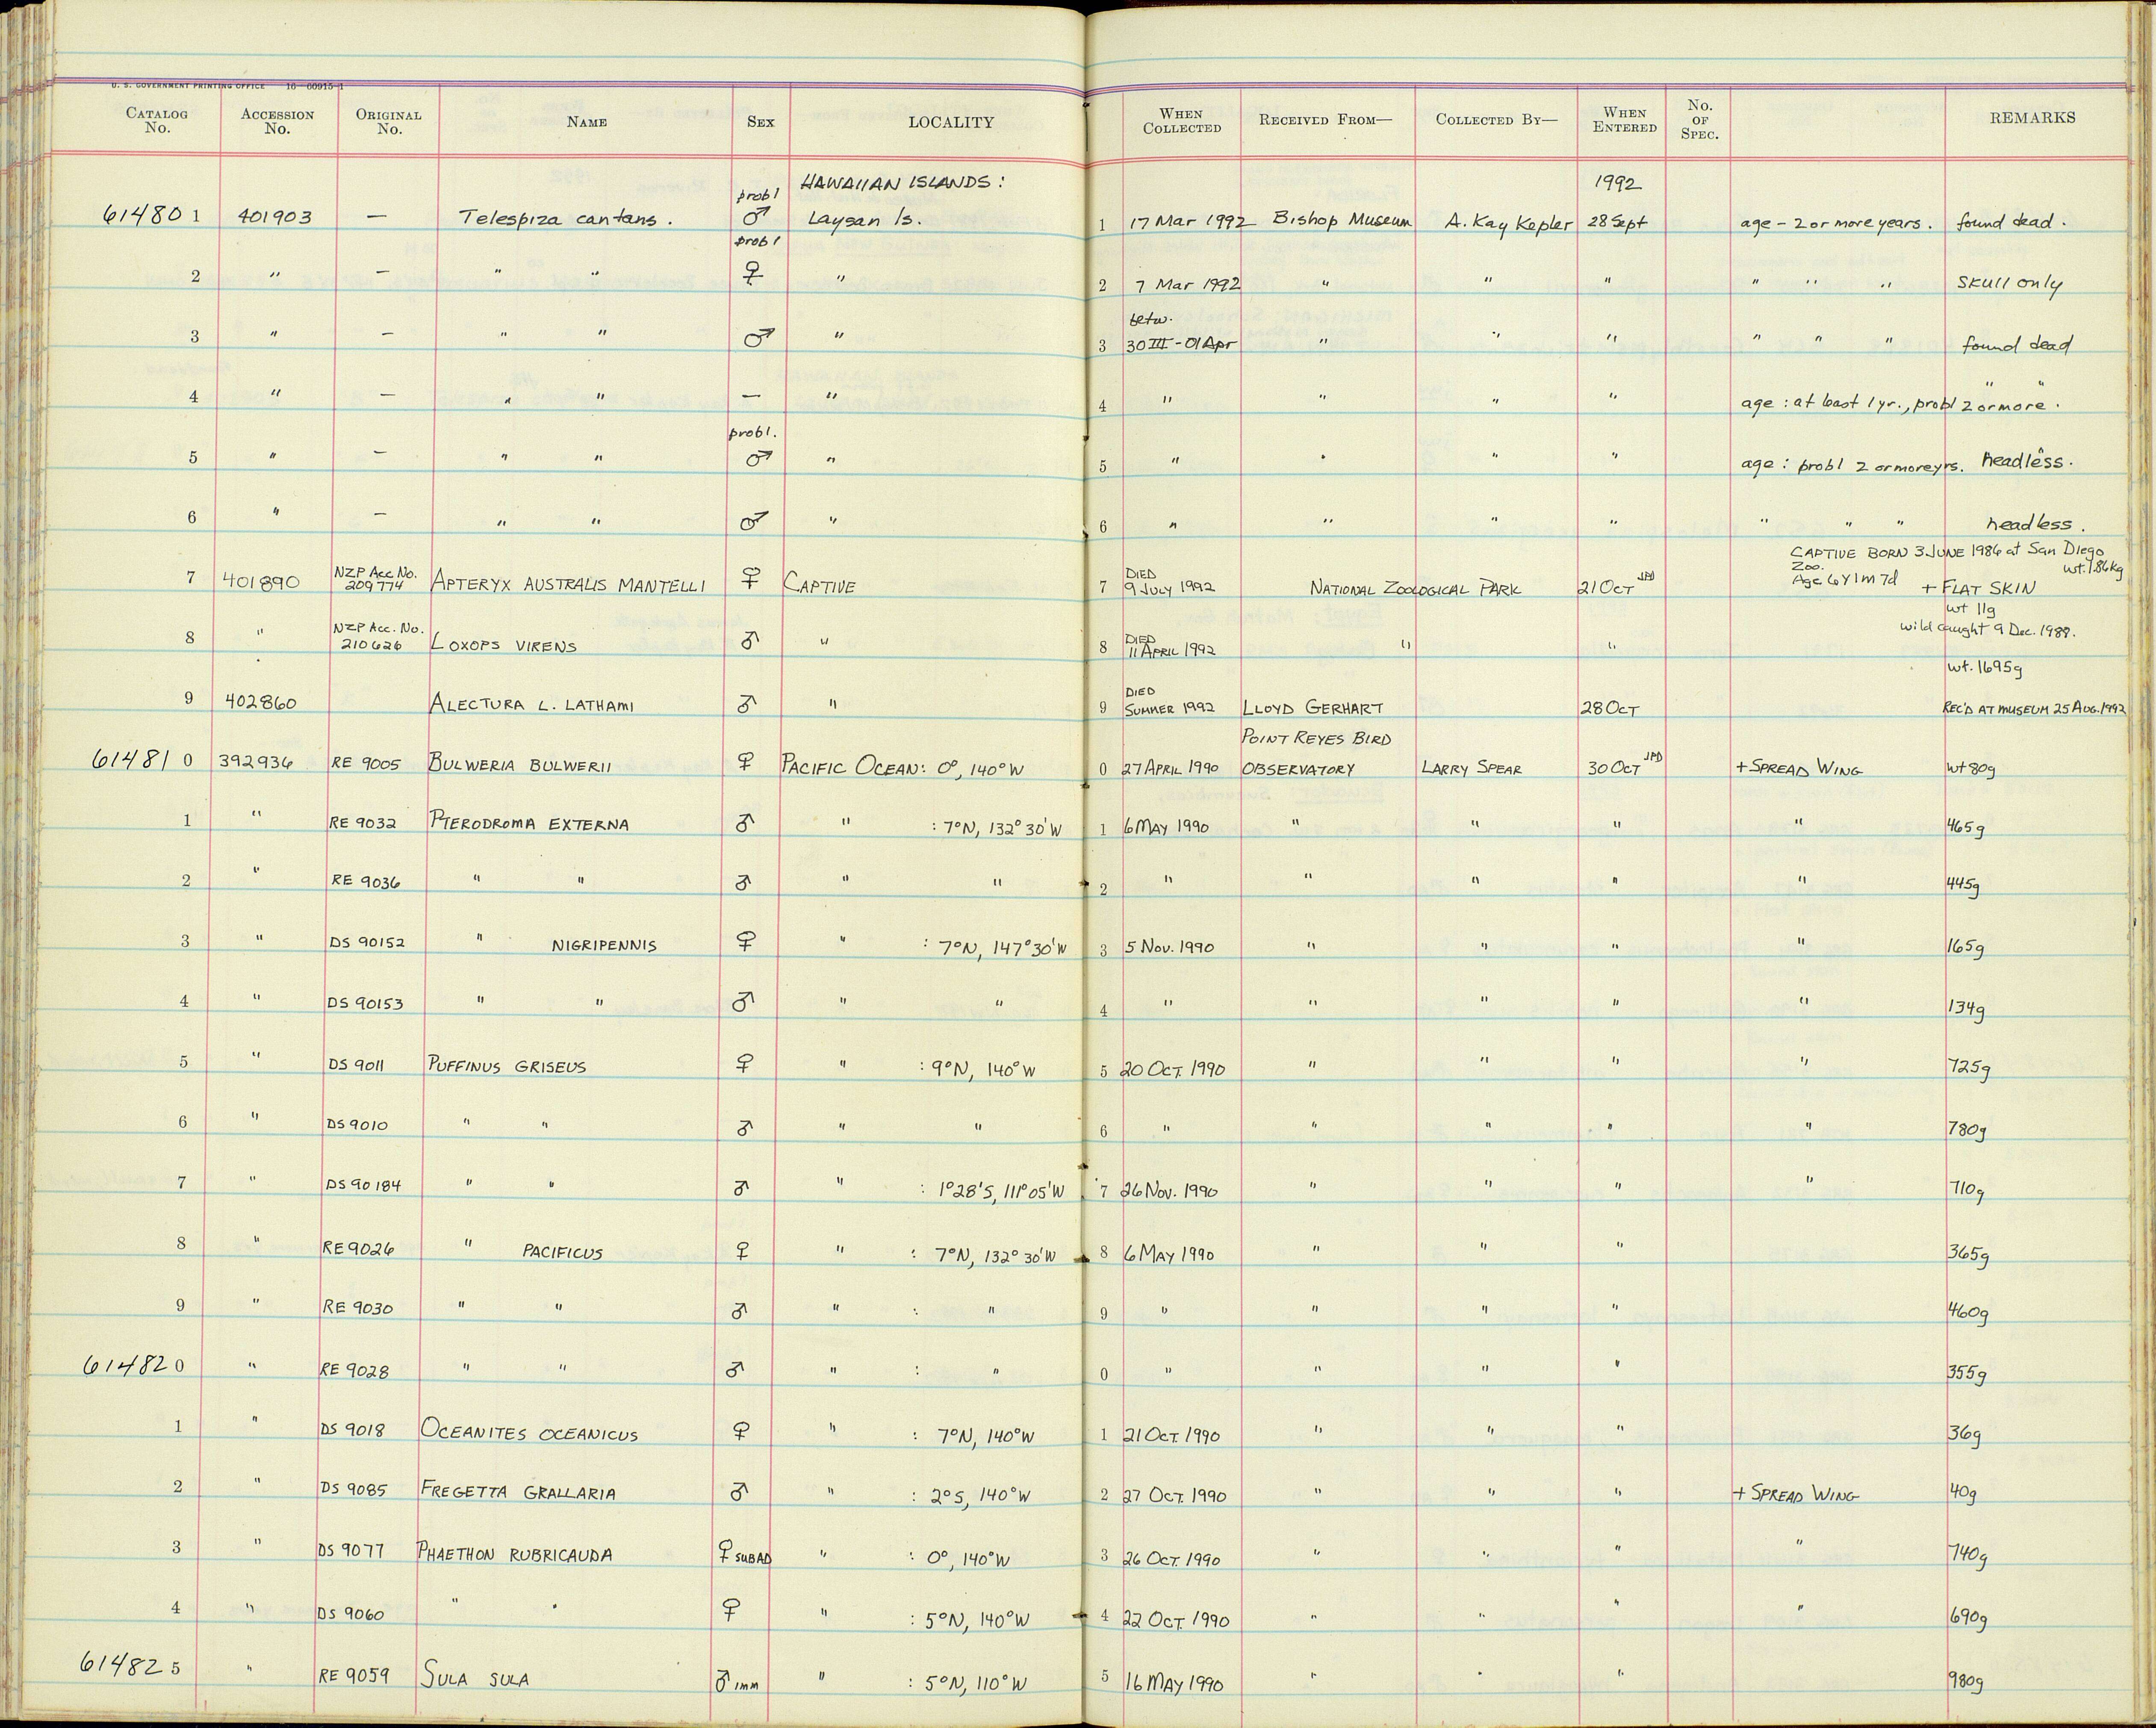 U. S. GOVERNMENT PRINTING OFFICE 16—60915-1
CATALOG No. ACCESSION No. ORIGINAL No. NAME SEX LOCALITY WHEN COLLECTED RECEIVED FROM— COLLECTED BY— WHEN ENTERED No. OF SPEC. REMARKS
HAWAIIAN ISLANDS: 1992
614801 401903 — Telespiza cantans. probl ♂ Laysan Is. 1 17 Mar 1992 Bishop Museum A. Kay Kepler 28 Sept age - 2 or more years. found dead.
2 " — " " probl ♀ " 2 7 Mar 1992 " " " " " " skull only
3 " — " " ♂ " 3 betw. 30 III - 01 Apr " " " " " " found dead
4 " — " " — " 4 " " " " age : at least 1 yr., probl 2 or more. " "
5 " — " " probl. ♂ " 5 " " " " age : probl 2 or more yrs. headless.
6 " — " " ♂ " 6 " " " " " " " headless.
CAPTIVE BORN 3 JUNE 1986 at San Diego
Zoo. wt. 1.86kg
7 401890 NZP Acc No. 209774 APTERYX AUSTRALIS MANTELLI ♀ CAPTIVE 7 DIED 9 JULY 1992 NATIONAL ZOOLOGICAL PARK 21 OCT JPD Age 6Y 1m 7d + FLAT SKIN
wt 11g
8 " NZP Acc. No. 210626 LOXOPS VIRENS ♂ " 8 DIED 11 APRIL 1992 " " wild caught 9 Dec. 1988.
wt. 1695g
9 402860 ALECTURA L. LATHAMI ♂ " 9 DIED SUMMER 1992 LLOYD GERHART 28 OCT REC'D AT MUSEUM 25 AUG. 1992
614810 392936 RE 9005 BULWERIA BULWERII ♀ PACIFIC OCEAN: 0°, 140°W 0 27 APRIL 1990 POINT REYES BIRD OBSERVATORY LARRY SPEAR 30 OCT JPD + SPREAD WING wt 80g
1 " RE 9032 PTERODROMA EXTERNA ♂ " : 7°N, 132°30'W 1 6 MAY 1990 " " " " 465g
2 " RE 9036 " " ♂ " " 2 " " " " " 445g
3 " DS 90152 " NIGRIPENNIS ♀ " : 7°N, 147°30'W 3 5 NOV. 1990 " " " " 165g
4 " DS 90153 " " ♂ " " 4 " " " " " 134g
5 " DS 9011 PUFFINUS GRISEUS ♀ " : 9°N, 140°W 5 20 OCT. 1990 " " " " 725g
6 " DS 9010 " " ♂ " " 6 " " " " " 780g
7 " DS 90184 " " ♂ " : 1°28'S, 111°05'W 7 26 NOV. 1990 " " " " 710g
8 " RE 9026 " PACIFICUS ♀ " : 7°N, 132°30'W 8 6 MAY 1990 " " " 365g
9 " RE 9030 " " ♂ " : " 9 " " " " 460g
614820 " RE 9028 " " ♂ " : " 0 " " " " 355g
1 " DS 9018 OCEANITES OCEANICUS ♀ " : 7°N, 140°W 1 21 OCT. 1990 " " " 36g
2 " DS 9085 FREGETTA GRALLARIA ♂ " : 2°S, 140°W 2 27 OCT. 1990 " " " + SPREAD WING 40g
3 " DS 9077 PHAETHON RUBRICAUDA ♀ SUBAD " : 0°, 140°W 3 26 OCT. 1990 " " " " 740g
4 " DS 9060 " " ♀ " : 5°N, 140°W 4 22 OCT. 1990 " " " " 690g
614825 " RE 9059 SULA SULA ♂ imm " : 5°N, 110°W 5 16 MAY 1990 " " " 980g